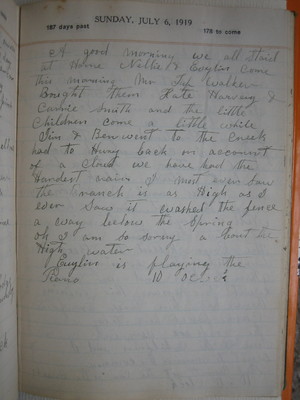 SUNDAY, JULY 6, 1919
187 days past
178 to come
A good morning we all staid
at Home Nellie & Evyline Come
this morning Mr Walker
Bought them Kate Harvey &
Carrie Smith and the little
Children come a little while
Jim & Ben went to the Creek
had to Hury back on account
of a Cloud we have had the
Hardest rain I most ever saw
the branch is as High as I
ever Saw it washed the fence
a way below the Spring
oh I am so sorry a bout the
High water
is playing the
Piano 10 oc